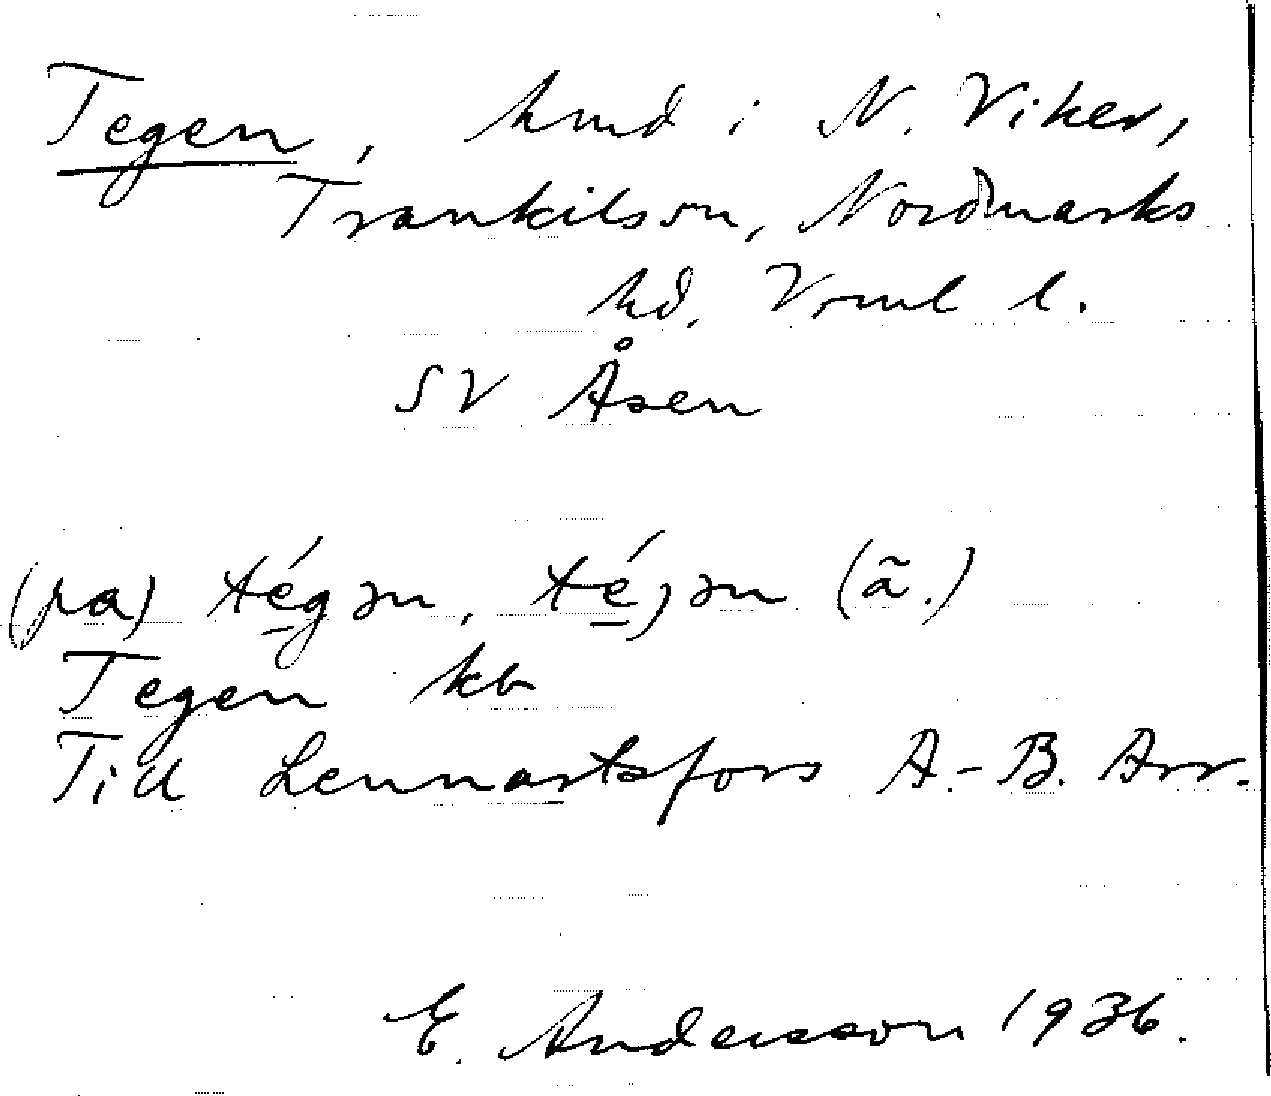 Tegen, hmd i N. Viker,
Trankilson, Nordmarks
hd. Vrml l.
SV Åsen
(pa) tégən, té̱jən (ã.)
Tegen kb
Till Lennartsfors A.-B. Arr.
E. Andersson 1936.